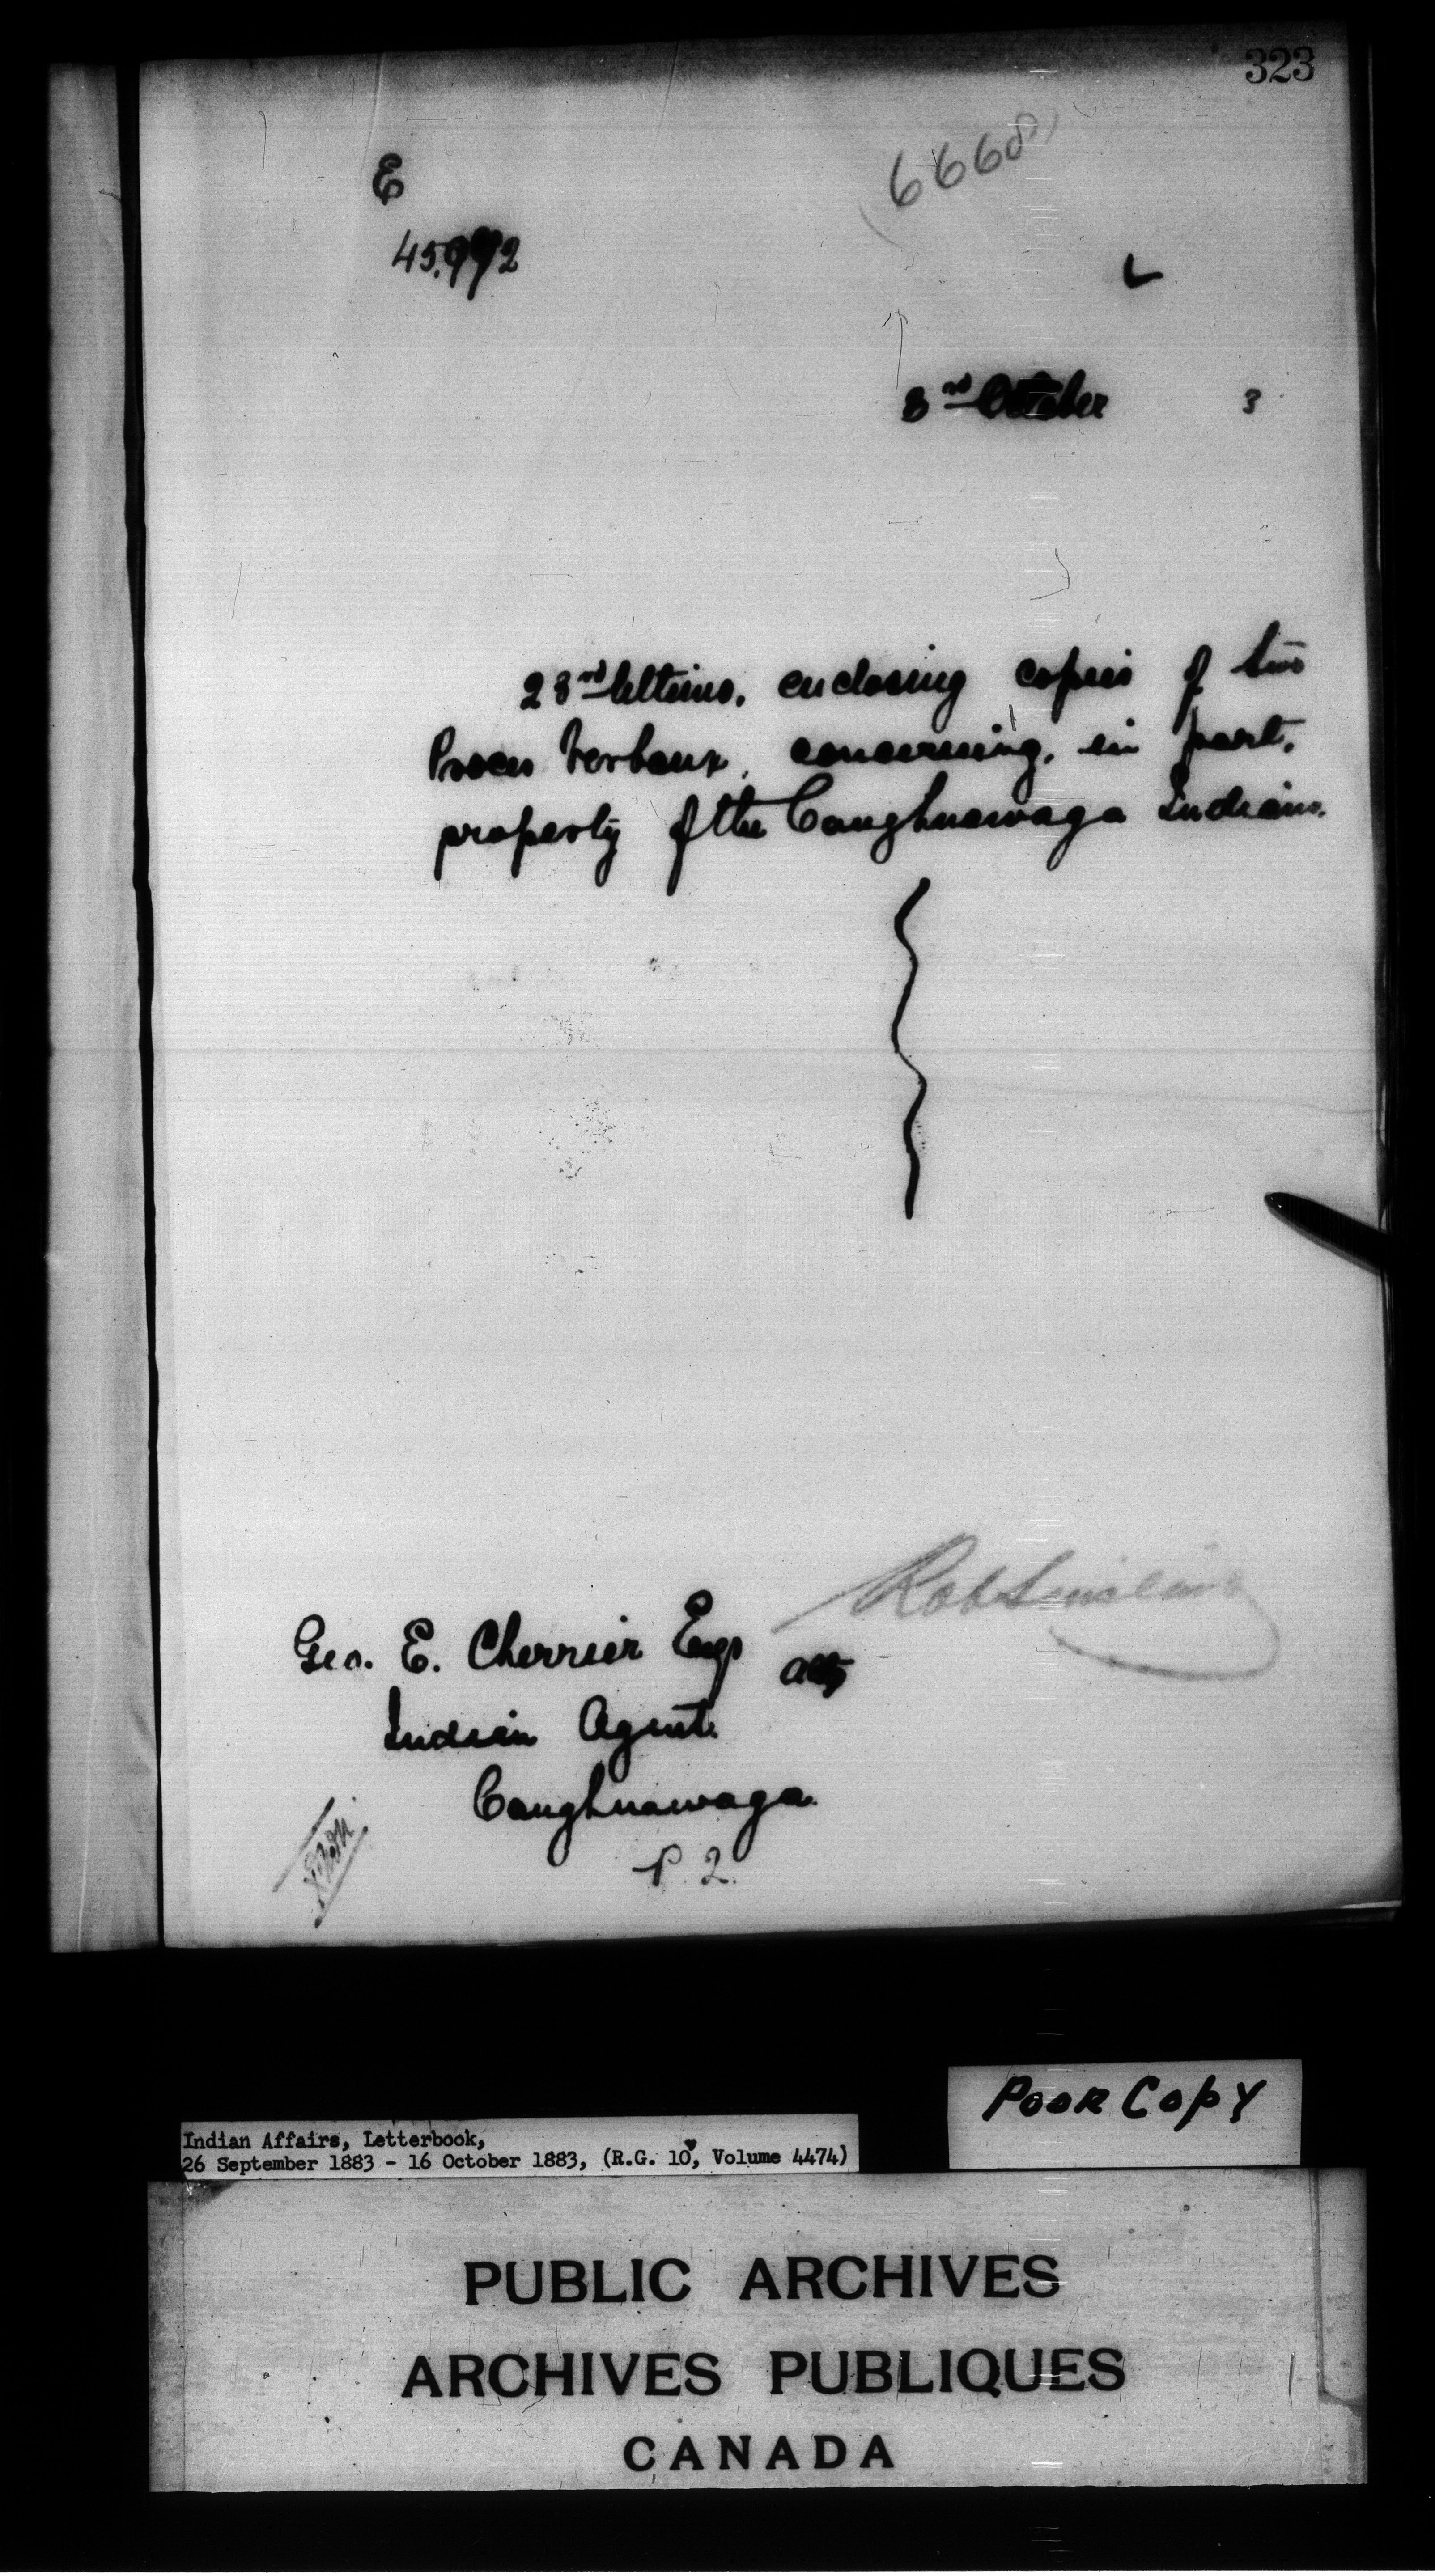 323
6668
E
45,992
L
3rd October 3
23rd Ultimo, enclosing copies of two
Proces Verbaux, concerning, in part,
property of the Caughnawaga Indians.
Rob Sinclair
Geo. E. Cherrier Esqr
actg
Indian Agent.
Caughnawaga.
P. 2.
Poor Copy
Indian Affairs, Letterbook,
26 September 1883 - 16 October 1883, (R.G. 10, Volume 4474)
PUBLIC ARCHIVES
ARCHIVES PUBLIQUES
CANADA